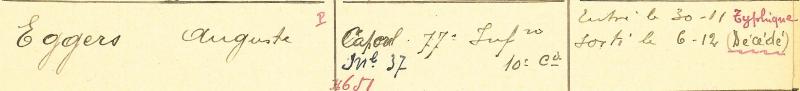 Eggers Auguste P
Caporl. 77e Infrie
Mle 37 10e Cie
4651
Entré le 30-11 Typhique
sorti le 6-12 (Décédé)